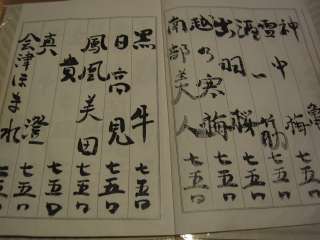 神亀
雪中梅
一筋 七五〇
出羽桜 七五〇
越の寒梅 七五〇
南部美人 七五〇
黒牛 七五〇
日高見 七五〇
鳳凰美田 七五〇
貴 七五〇
真澄 七五〇
会津ほまれ 七五